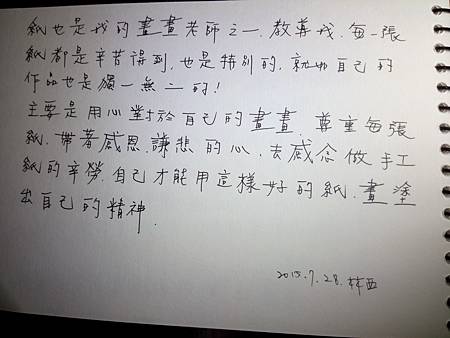 紙也是我的畫畫老師之一.教導我.每一張
紙都是辛苦得到.也是特別的.就如自己的
作品也是獨一無二的!
主要是用心對於自己的畫畫.尊重每張
紙.帶著感恩.謙悲的心.去感念做手工
紙的辛勞.自己才能用這樣好的紙.畫塗
出自己的精神.
2015.7.28.林西